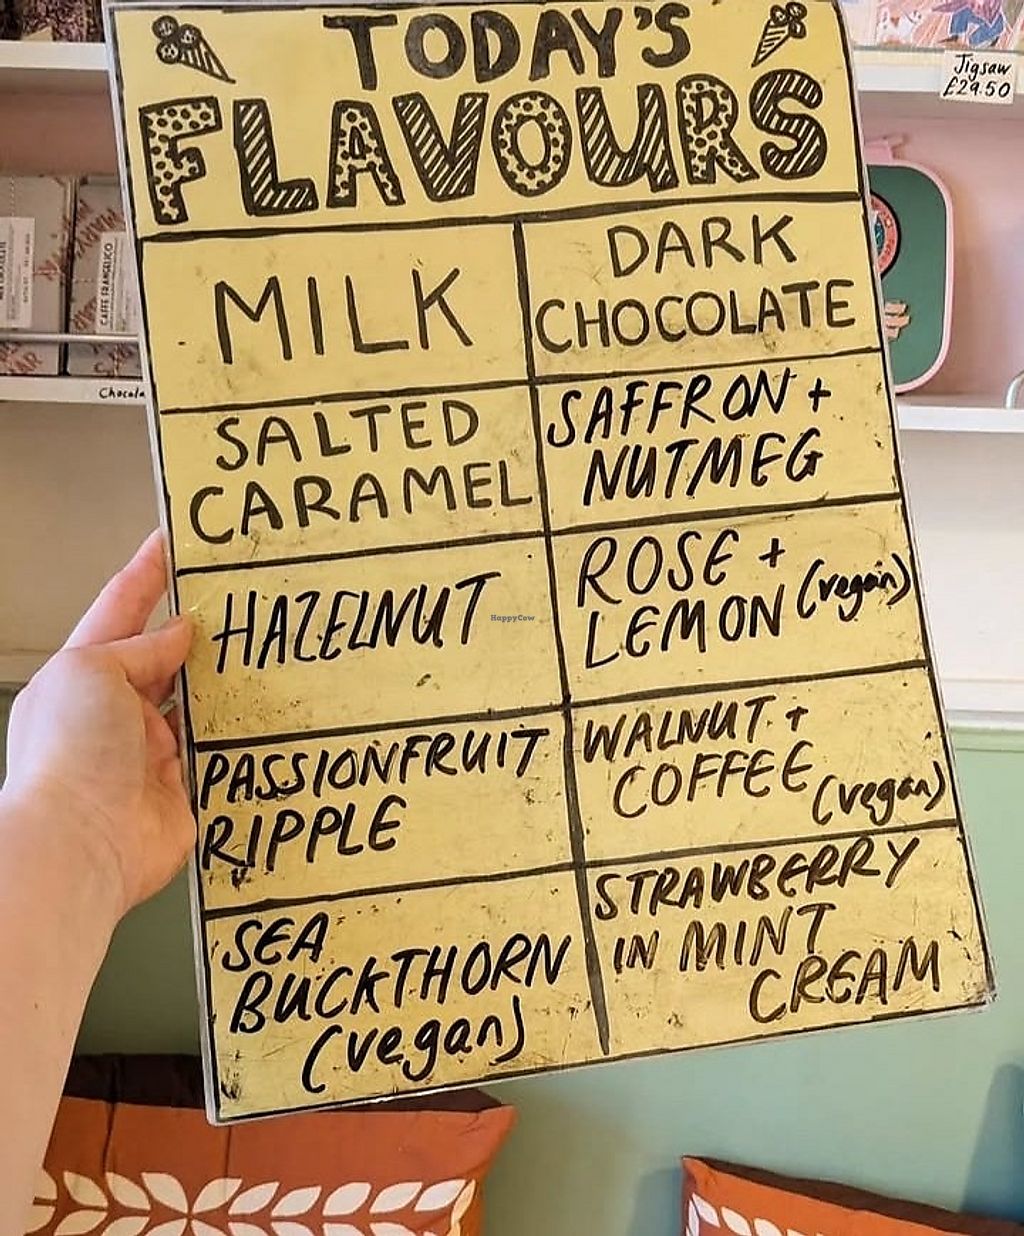 TODAY'S
FLAVOURS
MILK
DARK
CHOCOLATE
SALTED
CARAMEL
SAFFRON +
NUTMEG
HAZELNUT
ROSE +
LEMON (vegan)
PASSIONFRUIT
RIPPLE
WALNUT +
COFFEE
(vegan)
SEA
BUCKTHORN
(vegan)
STRAWBERRY
IN MINT
CREAM
Jigsaw
£29.50
CAFFE FRANGELICO
HappyCow